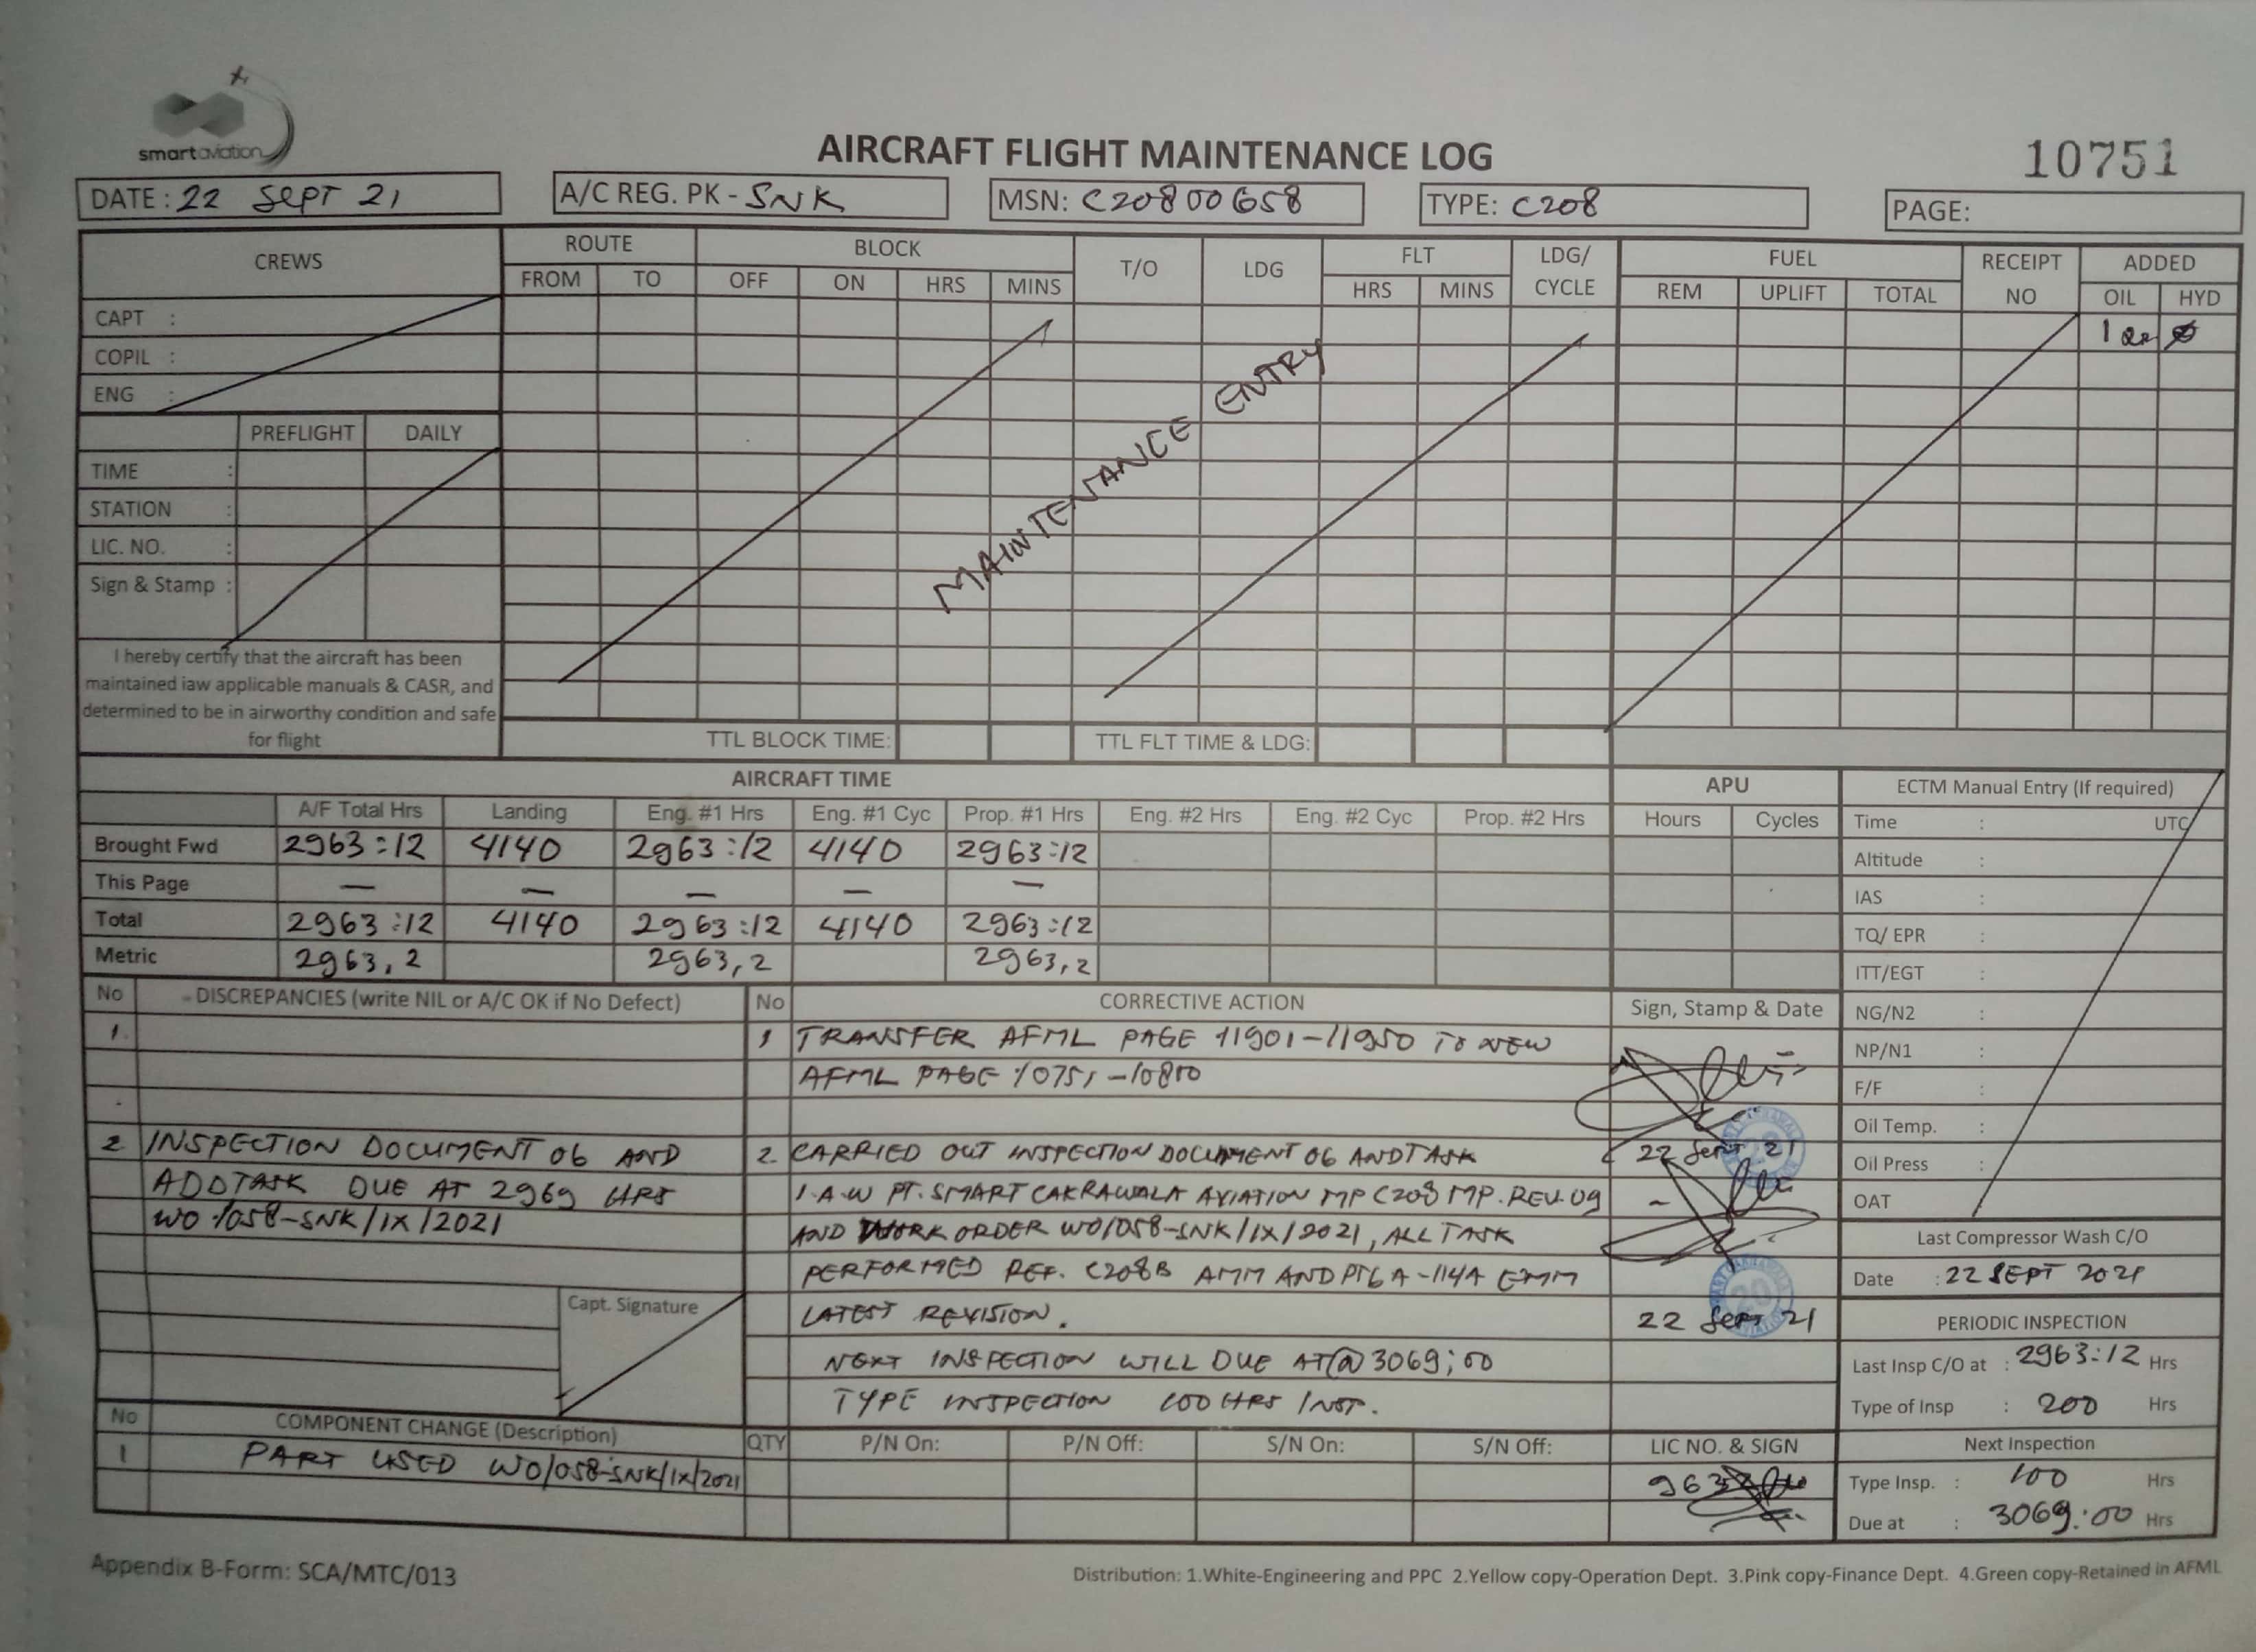 smartaviation
AIRCRAFT FLIGHT MAINTENANCE LOG
10751
DATE : 22 SEPT 21
A/C REG. PK - SNK
MSN: C20800658
TYPE: C208
PAGE:
CREWS
ROUTE
BLOCK
T/O
LDG
FLT
LDG/
CYCLE
FUEL
RECEIPT
NO
ADDED
FROM TO OFF ON HRS MINS HRS MINS REM UPLIFT TOTAL OIL HYD
CAPT :
COPIL :
ENG :
1
PREFLIGHT DAILY
TIME :
STATION :
LIC. NO. :
Sign & Stamp :
MAINTENANCE ENTRY
I hereby certify that the aircraft has been
maintained iaw applicable manuals & CASR, and
determined to be in airworthy condition and safe
for flight
TTL BLOCK TIME:
TTL FLT TIME & LDG:
AIRCRAFT TIME
A/F Total Hrs Landing Eng. #1 Hrs Eng. #1 Cyc Prop. #1 Hrs Eng. #2 Hrs Eng. #2 Cyc Prop. #2 Hrs
Brought Fwd 2963:12 4140 2963:12 4140 2963:12
This Page — — — — —
Total 2963:12 4140 2963:12 4140 2963:12
Metric 2963,2 2963,2 2963,2
APU
Hours Cycles
ECTM Manual Entry (If required)
Time : UTC
Altitude :
IAS :
TQ/ EPR :
ITT/EGT :
NG/N2 :
NP/N1 :
F/F :
Oil Temp. :
Oil Press :
OAT :
No DISCREPANCIES (write NIL or A/C OK if No Defect)
1.
2 INSPECTION DOCUMENT 06 AND
ADDTASK DUE AT 2969 HRS
WO/058-SNK/IX/2021
Capt. Signature
No CORRECTIVE ACTION
1 TRANSFER AFML PAGE 11901-11950 TO NEW
AFML PAGE 10751-10800
2. CARRIED OUT INSPECTION DOCUMENT 06 AND TASK
I.A.W PT. SMART CAKRAWALA AVIATION MP C208 MP. REV. 09
AND WORK ORDER WO/058-SNK/IX/2021, ALL TASK
PERFORMED REF. C208B AMM AND PT6A-114A EMM
LATEST REVISION.
NEXT INSPECTION WILL DUE AT @ 3069:00
TYPE INSPECTION 100 HRS INSP.
Sign, Stamp & Date
22 Sept 21
22 Sept 21
Last Compressor Wash C/O
Date : 22 SEPT 2021
PERIODIC INSPECTION
Last Insp C/O at : 2963:12 Hrs
Type of Insp : 200 Hrs
Next Inspection
Type Insp. : 100 Hrs
Due at : 3069:00 Hrs
No COMPONENT CHANGE (Description) QTY P/N On: P/N Off: S/N On: S/N Off: LIC NO. & SIGN
1 PART USED WO/058-SNK/IX/2021
Appendix B-Form: SCA/MTC/013
Distribution: 1.White-Engineering and PPC 2.Yellow copy-Operation Dept. 3.Pink copy-Finance Dept. 4.Green copy-Retained in AFML